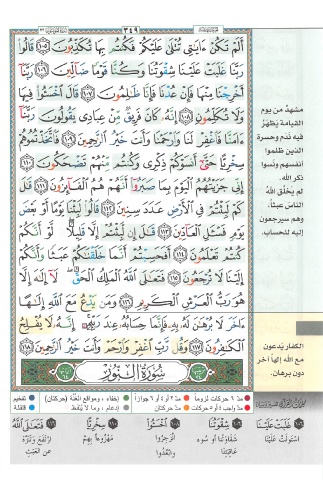 ٣٤٩
أَلَمْ تَكُنْ ءَايَٰتِى تُتْلَىٰ عَلَيْكُمْ فَكُنتُم بِهَا تُكَذِّبُونَ ١٠٥ قَالُوا۟
رَبَّنَا غَلَبَتْ عَلَيْنَا شِقْوَتُنَا وَكُنَّا قَوْمًا ضَآلِّينَ ١٠٦ رَبَّنَآ
أَخْرِجْنَا مِنْهَا فَإِنْ عُدْنَا فَإِنَّا ظَٰلِمُونَ ١٠٧ قَالَ ٱخْسَـُٔوا۟ فِيهَا
وَلَا تُكَلِّمُونِ ١٠٨ إِنَّهُۥ كَانَ فَرِيقٌ مِّنْ عِبَادِى يَقُولُونَ رَبَّنَآ
ءَامَنَّا فَٱغْفِرْ لَنَا وَٱرْحَمْنَا وَأَنتَ خَيْرُ ٱلرَّٰحِمِينَ ١٠٩ فَٱتَّخَذْتُمُوهُمْ
سِخْرِيًّا حَتَّىٰٓ أَنسَوْكُمْ ذِكْرِى وَكُنتُم مِّنْهُمْ تَضْحَكُونَ ١١٠
إِنِّى جَزَيْتُهُمُ ٱلْيَوْمَ بِمَا صَبَرُوٓا۟ أَنَّهُمْ هُمُ ٱلْفَآئِزُونَ ١١١ قَٰلَ
كَمْ لَبِثْتُمْ فِى ٱلْأَرْضِ عَدَدَ سِنِينَ ١١٢ قَالُوا۟ لَبِثْنَا يَوْمًا أَوْ بَعْضَ
يَوْمٍ فَسْـَٔلِ ٱلْعَآدِّينَ ١١٣ قَٰلَ إِن لَّبِثْتُمْ إِلَّا قَلِيلًا لَّوْ أَنَّكُمْ
كُنتُمْ تَعْلَمُونَ ١١٤ أَفَحَسِبْتُمْ أَنَّمَا خَلَقْنَٰكُمْ عَبَثًا وَأَنَّكُمْ
إِلَيْنَا لَا تُرْجَعُونَ ١١٥ فَتَعَٰلَى ٱللَّهُ ٱلْمَلِكُ ٱلْحَقُّ لَآ إِلَٰهَ إِلَّا
هُوَ رَبُّ ٱلْعَرْشِ ٱلْكَرِيمِ ١١٦ وَمَن يَدْعُ مَعَ ٱللَّهِ إِلَٰهًا
ءَاخَرَ لَا بُرْهَٰنَ لَهُۥ بِهِۦ فَإِنَّمَا حِسَابُهُۥ عِندَ رَبِّهِۦٓ إِنَّهُۥ لَا يُفْلِحُ
ٱلْكَٰفِرُونَ ١١٧ وَقُل رَّبِّ ٱغْفِرْ وَٱرْحَمْ وَأَنتَ خَيْرُ ٱلرَّٰحِمِينَ ١١٨
سُورَةُ النُّورِ
مشهدٌ من يوم
القيامة يظهَرُ
فيه ندم وحسرة
الذين ظلموا
أنفسهم ونَسوا
ذكر الله.
لم يخلُق اللهُ
الناسَ عبثاً،
وهم سيرجعون
إليه للحساب.
الكفار يدعون
مع الله إلهاً آخر
دون برهان.
مدّ ٦ حركات لزوماً مدّ ٢ أو ٤ أو ٦ جوازاً إخفاء، ومواقع الغُنَّة (حركتان) تفخيم
مدّ واجب ٤ أو ٥ حركات مدّ حركتان إدغام، وما لا يُلفَظ قلقلة
غَلَبَتْ عَلَيْنَا
استولَت علينا
شِقْوَتُنَا
شقاوتُنا أو سوء
عاقبتنا
اخْسَئُوا
انزجروا
وابعُدوا
سِخْرِيًّا
مهزوءاً بهم
فَتَعَالَى اللَّهُ
ارتفع وتنزّه
عن العبث